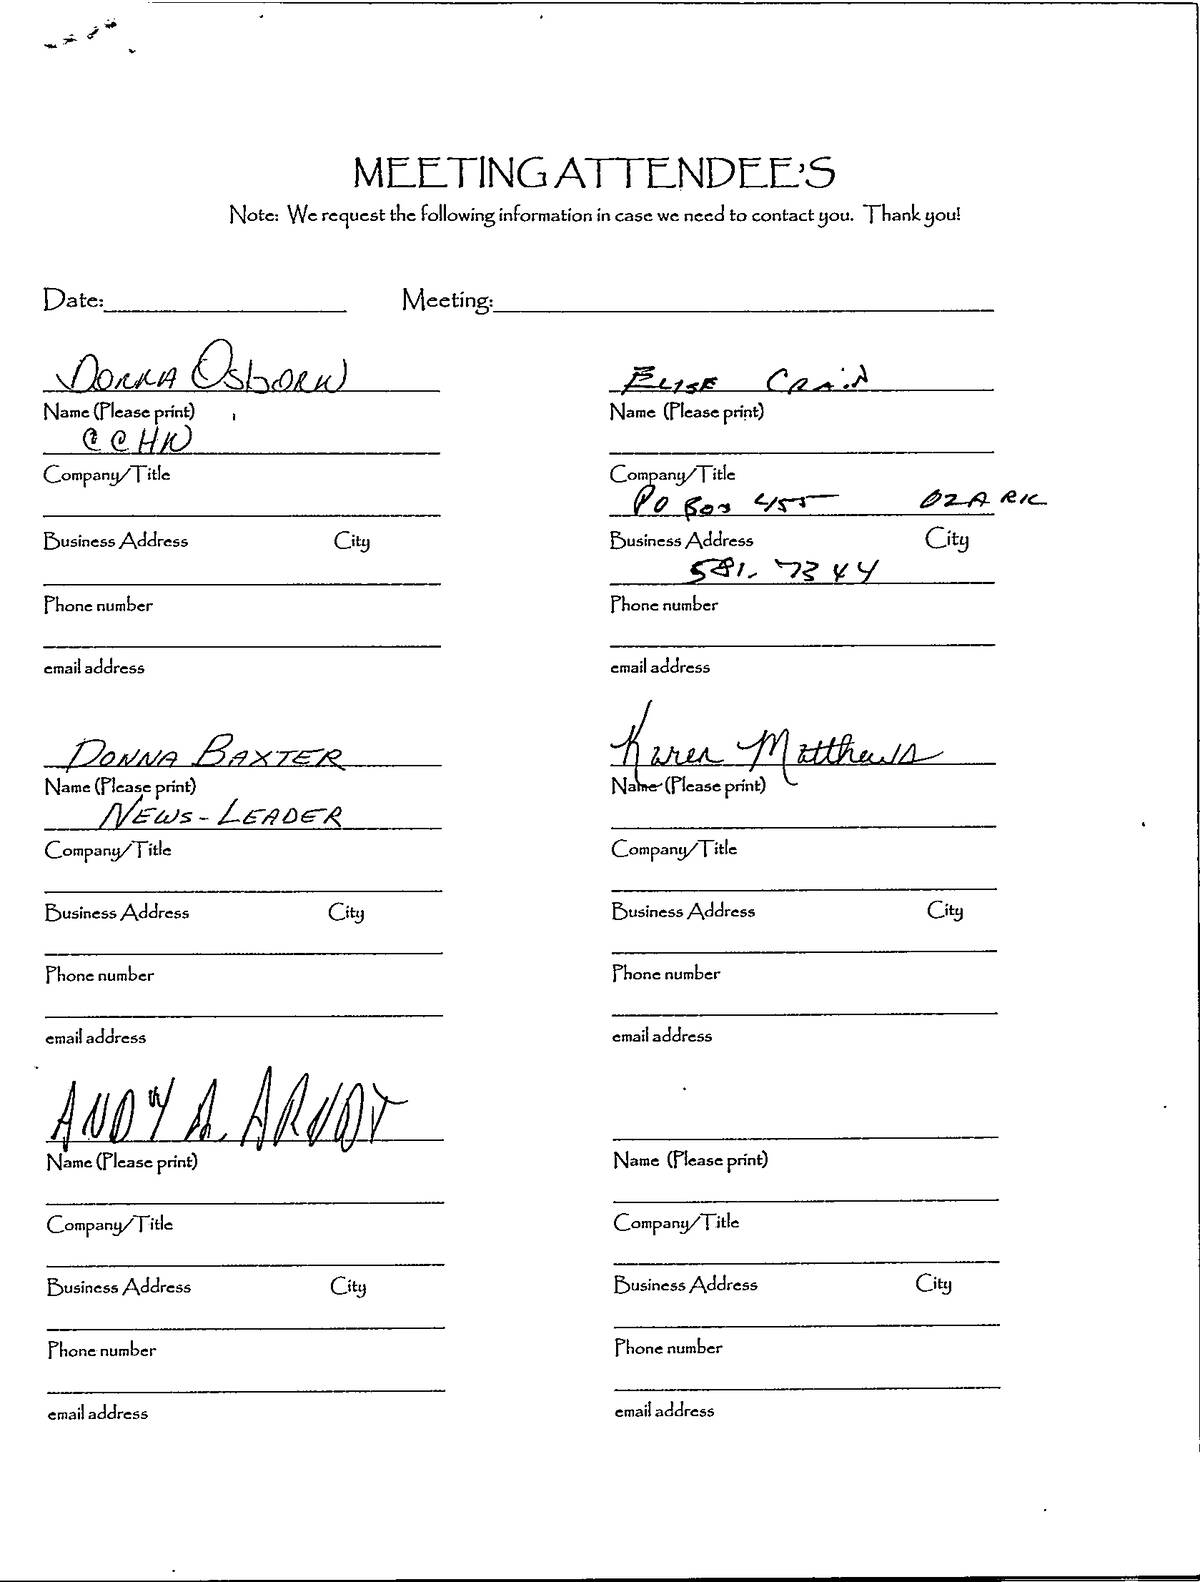 MEETING ATTENDEE'S
Note: We request the following information in case we need to contact you. Thank you!
Date: Meeting:
Donna Osborn
Name (Please print)
CCHN
Company/Title
Business Address City
Phone number
email address
Elise Crain
Name (Please print)
Company/Title
PO Box 455 OZARK
Business Address City
581-7344
Phone number
email address
DONNA BAXTER
Name (Please print)
NEWS-LEADER
Company/Title
Business Address City
Phone number
email address
Karen Matthews
Name (Please print)
Company/Title
Business Address City
Phone number
email address
ANDY A. ARNDT
Name (Please print)
Company/Title
Business Address City
Phone number
email address
Name (Please print)
Company/Title
Business Address City
Phone number
email address